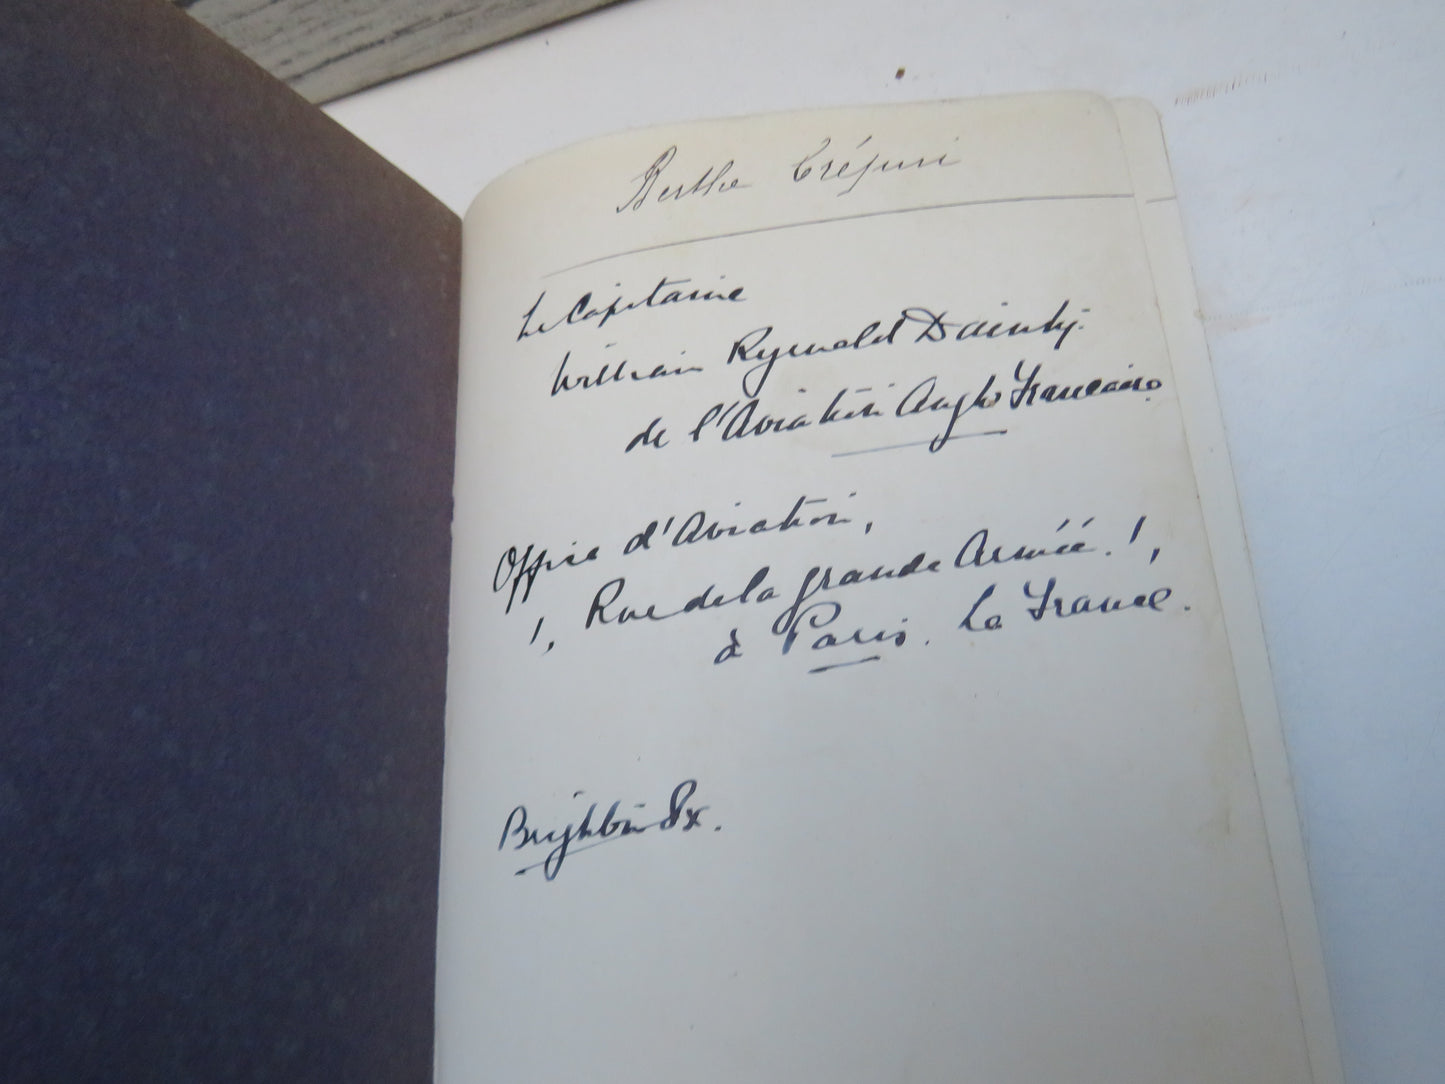 Berthe Tréguri
Le Capitaine
William Reynold Dainty.
de l'Aviation Anglo Française.
Office d'Aviation,
1, Rue de la grande Armée. 1,
à Paris. La France.
Brighton Sx.